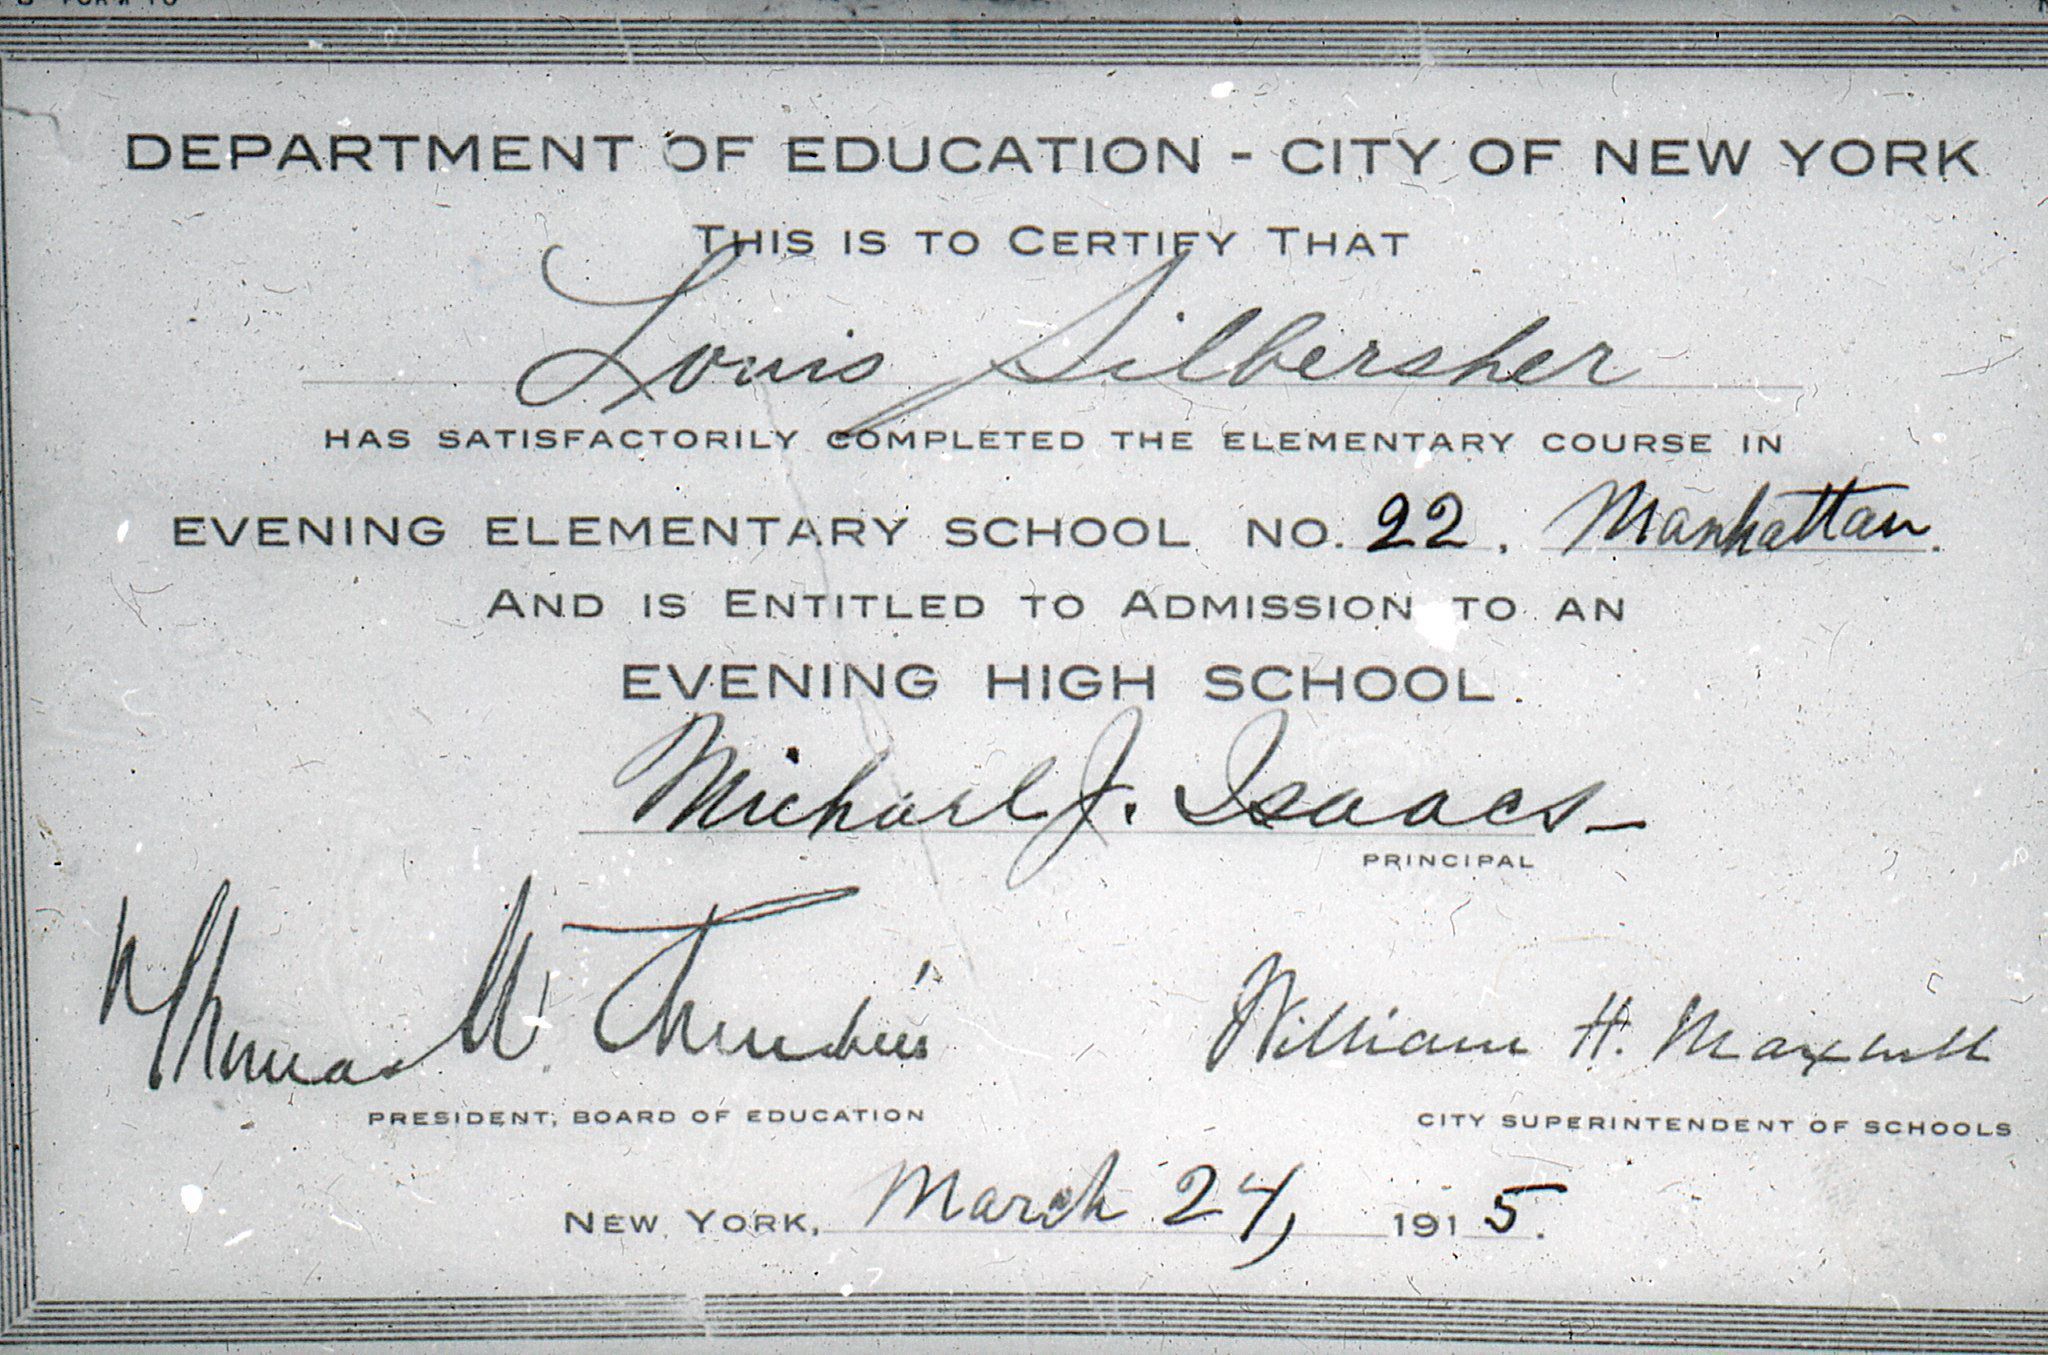 DEPARTMENT OF EDUCATION - CITY OF NEW YORK
THIS IS TO CERTIFY THAT
Louis Silbersher
HAS SATISFACTORILY COMPLETED THE ELEMENTARY COURSE IN
EVENING ELEMENTARY SCHOOL NO. 22, Manhattan.
AND IS ENTITLED TO ADMISSION TO AN
EVENING HIGH SCHOOL.
Michael J. Isaacs
PRINCIPAL
Thomas W. Churchill William H. Maxwell
PRESIDENT, BOARD OF EDUCATION CITY SUPERINTENDENT OF SCHOOLS
NEW YORK, March 24, 1915.